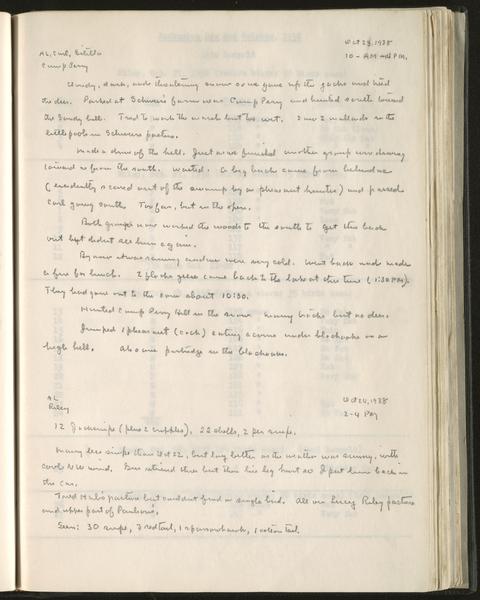 AL, Carl, Estella
Oct 23, 1938
Camp Perry
10 - AM - 4 PM.
Windy, dark, and threatening snow so we gave up the jacks and tried
the deer. Parked at Schwers farm near Camp Perry and hunted south toward
the Sandy hill. Tried to work the marsh but too wet. Saw 2 mallards in the
little pools in Schwers pasture.
Made a drive of the hill. Just as we finished another group was driving
toward us from the south. Waited. A big buck came from behind us
(evidently scared out of the swamp by a pheasant hunter) and passed
Carl going south. Too far, but in the open.
Both groups now worked the woods to the south to get this buck
out but didn't see him again.
By now it was raining and we were very cold. Went back and made
a fire for lunch. 2 flocks geese came back to the lake at this time (1:30 PM).
They had gone out to the corn about 10:30.
Hunted Camp Perry Hill in the rain. Many tracks but no deer.
Jumped 1 pheasant (cock) eating acorns under blackoaks on a
high hill. Also one partridge in the blackoaks.
AL
Oct 24, 1938
Riley
2-4 PM
12 Jacksnipe (plus 2 cripples). 22 shells, 2 per snipe.
Many less snipe than Oct 22, but lay better as the weather was sunny, with
cool NW wind. Gus retrieved three but then his leg hurt so I put him back in
the car.
Tried Hub's pasture but couldn't find a single bird. All on Riley pasture
and upper part of Paulson's.
Seen: 30 snipe, 3 redtail, 1 sparrowhawk, 1 cottontail.